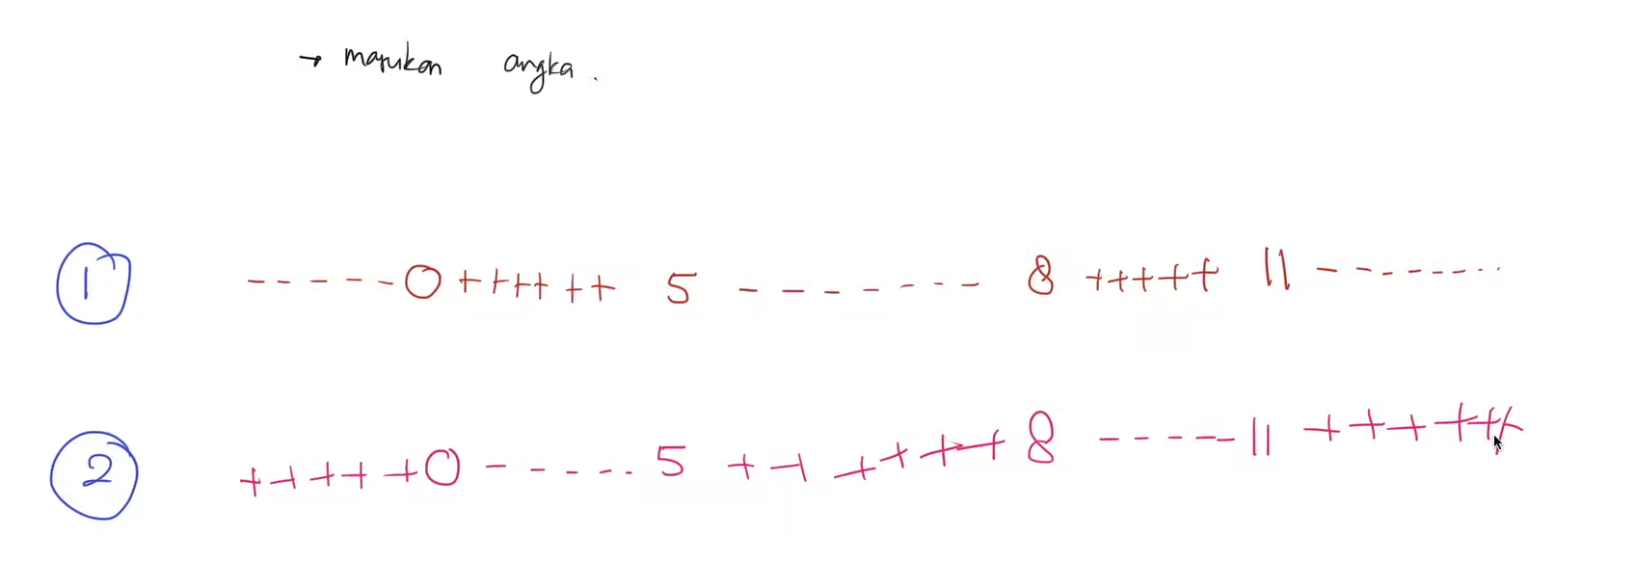 → masukan angka.
① -----0++++++ 5 -------- 8 +++++ 11 --------
② +++++0-----5 ++++++8 -----11 ++++++